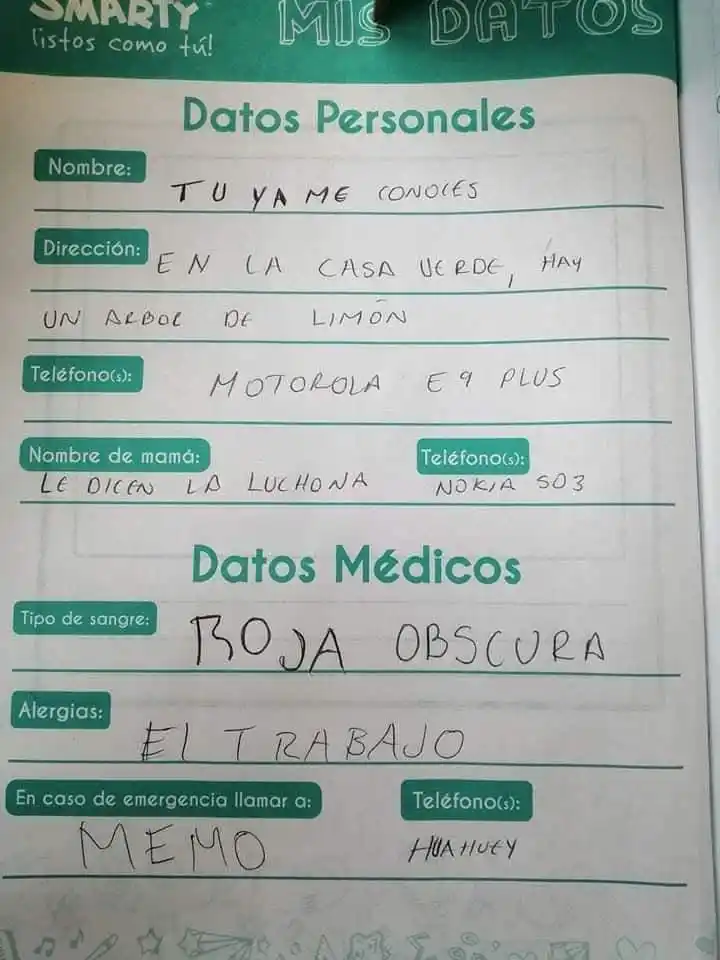 SMARTY
listos como tú!
MIS DATOS
Datos Personales
Nombre: TU YA ME CONOCES
Dirección: EN LA CASA VERDE, HAY
UN ARBOL DE LIMÓN
Teléfono(s): MOTOROLA E9 PLUS
Nombre de mamá: Teléfono(s):
LE DICEN LA LUCHONA NOKIA 503
Datos Médicos
Tipo de sangre: ROJA OBSCURA
Alergias: El TRABAJO
En caso de emergencia llamar a: Teléfono(s):
MEMO HUAHUEY